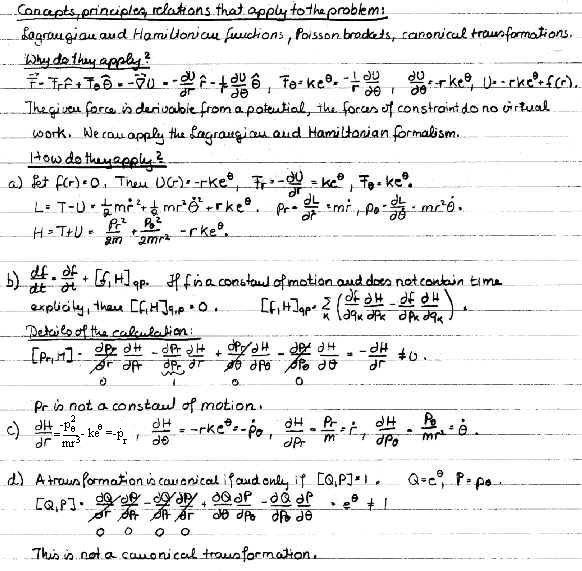 Concepts, principles, relations that apply to the problem:
Lagrangian and Hamiltonian functions, Poisson brackets, canonical transformations.
Why do they apply?
F⃗ = F_r r̂ + F_θ θ̂ = -∇⃗U = -∂U/∂r r̂ - 1/r ∂U/∂θ θ̂ , F_θ = ke^θ = -1/r ∂U/∂θ , ∂U/∂θ = -rke^θ, U = -rke^θ + f(r).
The given force is derivable from a potential, the forces of constraint do no virtual
work. We can apply the Lagrangian and Hamiltonian formalism.
How do they apply?
a) Let f(r) = 0. Then U(r) = -rke^θ, F_r = -∂U/∂r = ke^θ, F_θ = ke^θ.
L = T-U = ½mṙ² + ½mr²θ̇² + rke^θ. p_r = ∂L/∂ṙ = mṙ, p_θ = ∂L/∂θ̇ = mr²θ̇.
H = T+U = p_r²/2m + p_θ²/2mr² - rke^θ.
b) df/dt = ∂f/∂t + [f,H]_qp. If f is a constant of motion and does not contain time
explicitly, then [f,H]_q,p = 0. [f,H]_qp = Σ_k (∂f/∂q_k ∂H/∂p_k - ∂f/∂p_k ∂H/∂q_k).
Details of the calculation:
[p_r,H] = ∂p_r/∂r ∂H/∂p_r - ∂p_r/∂p_r ∂H/∂r + ∂p_r/∂θ ∂H/∂p_θ - ∂p_r/∂p_θ ∂H/∂θ = -∂H/∂r ≠ 0.
0 1 0 0
p_r is not a constant of motion.
c) ∂H/∂r = -p_θ²/mr³ - ke^θ = -ṗ_r , ∂H/∂θ = -rke^θ = -ṗ_θ , ∂H/∂p_r = p_r/m = ṙ, ∂H/∂p_θ = p_θ/mr² = θ̇.
d) A transformation is canonical if and only if [Q,P] = 1. Q = e^θ, P = p_θ.
[Q,P] = ∂Q/∂r ∂P/∂p_r - ∂Q/∂p_r ∂P/∂r + ∂Q/∂θ ∂P/∂p_θ - ∂Q/∂p_θ ∂P/∂θ = e^θ ≠ 1
0 0 0 0
This is not a canonical transformation.